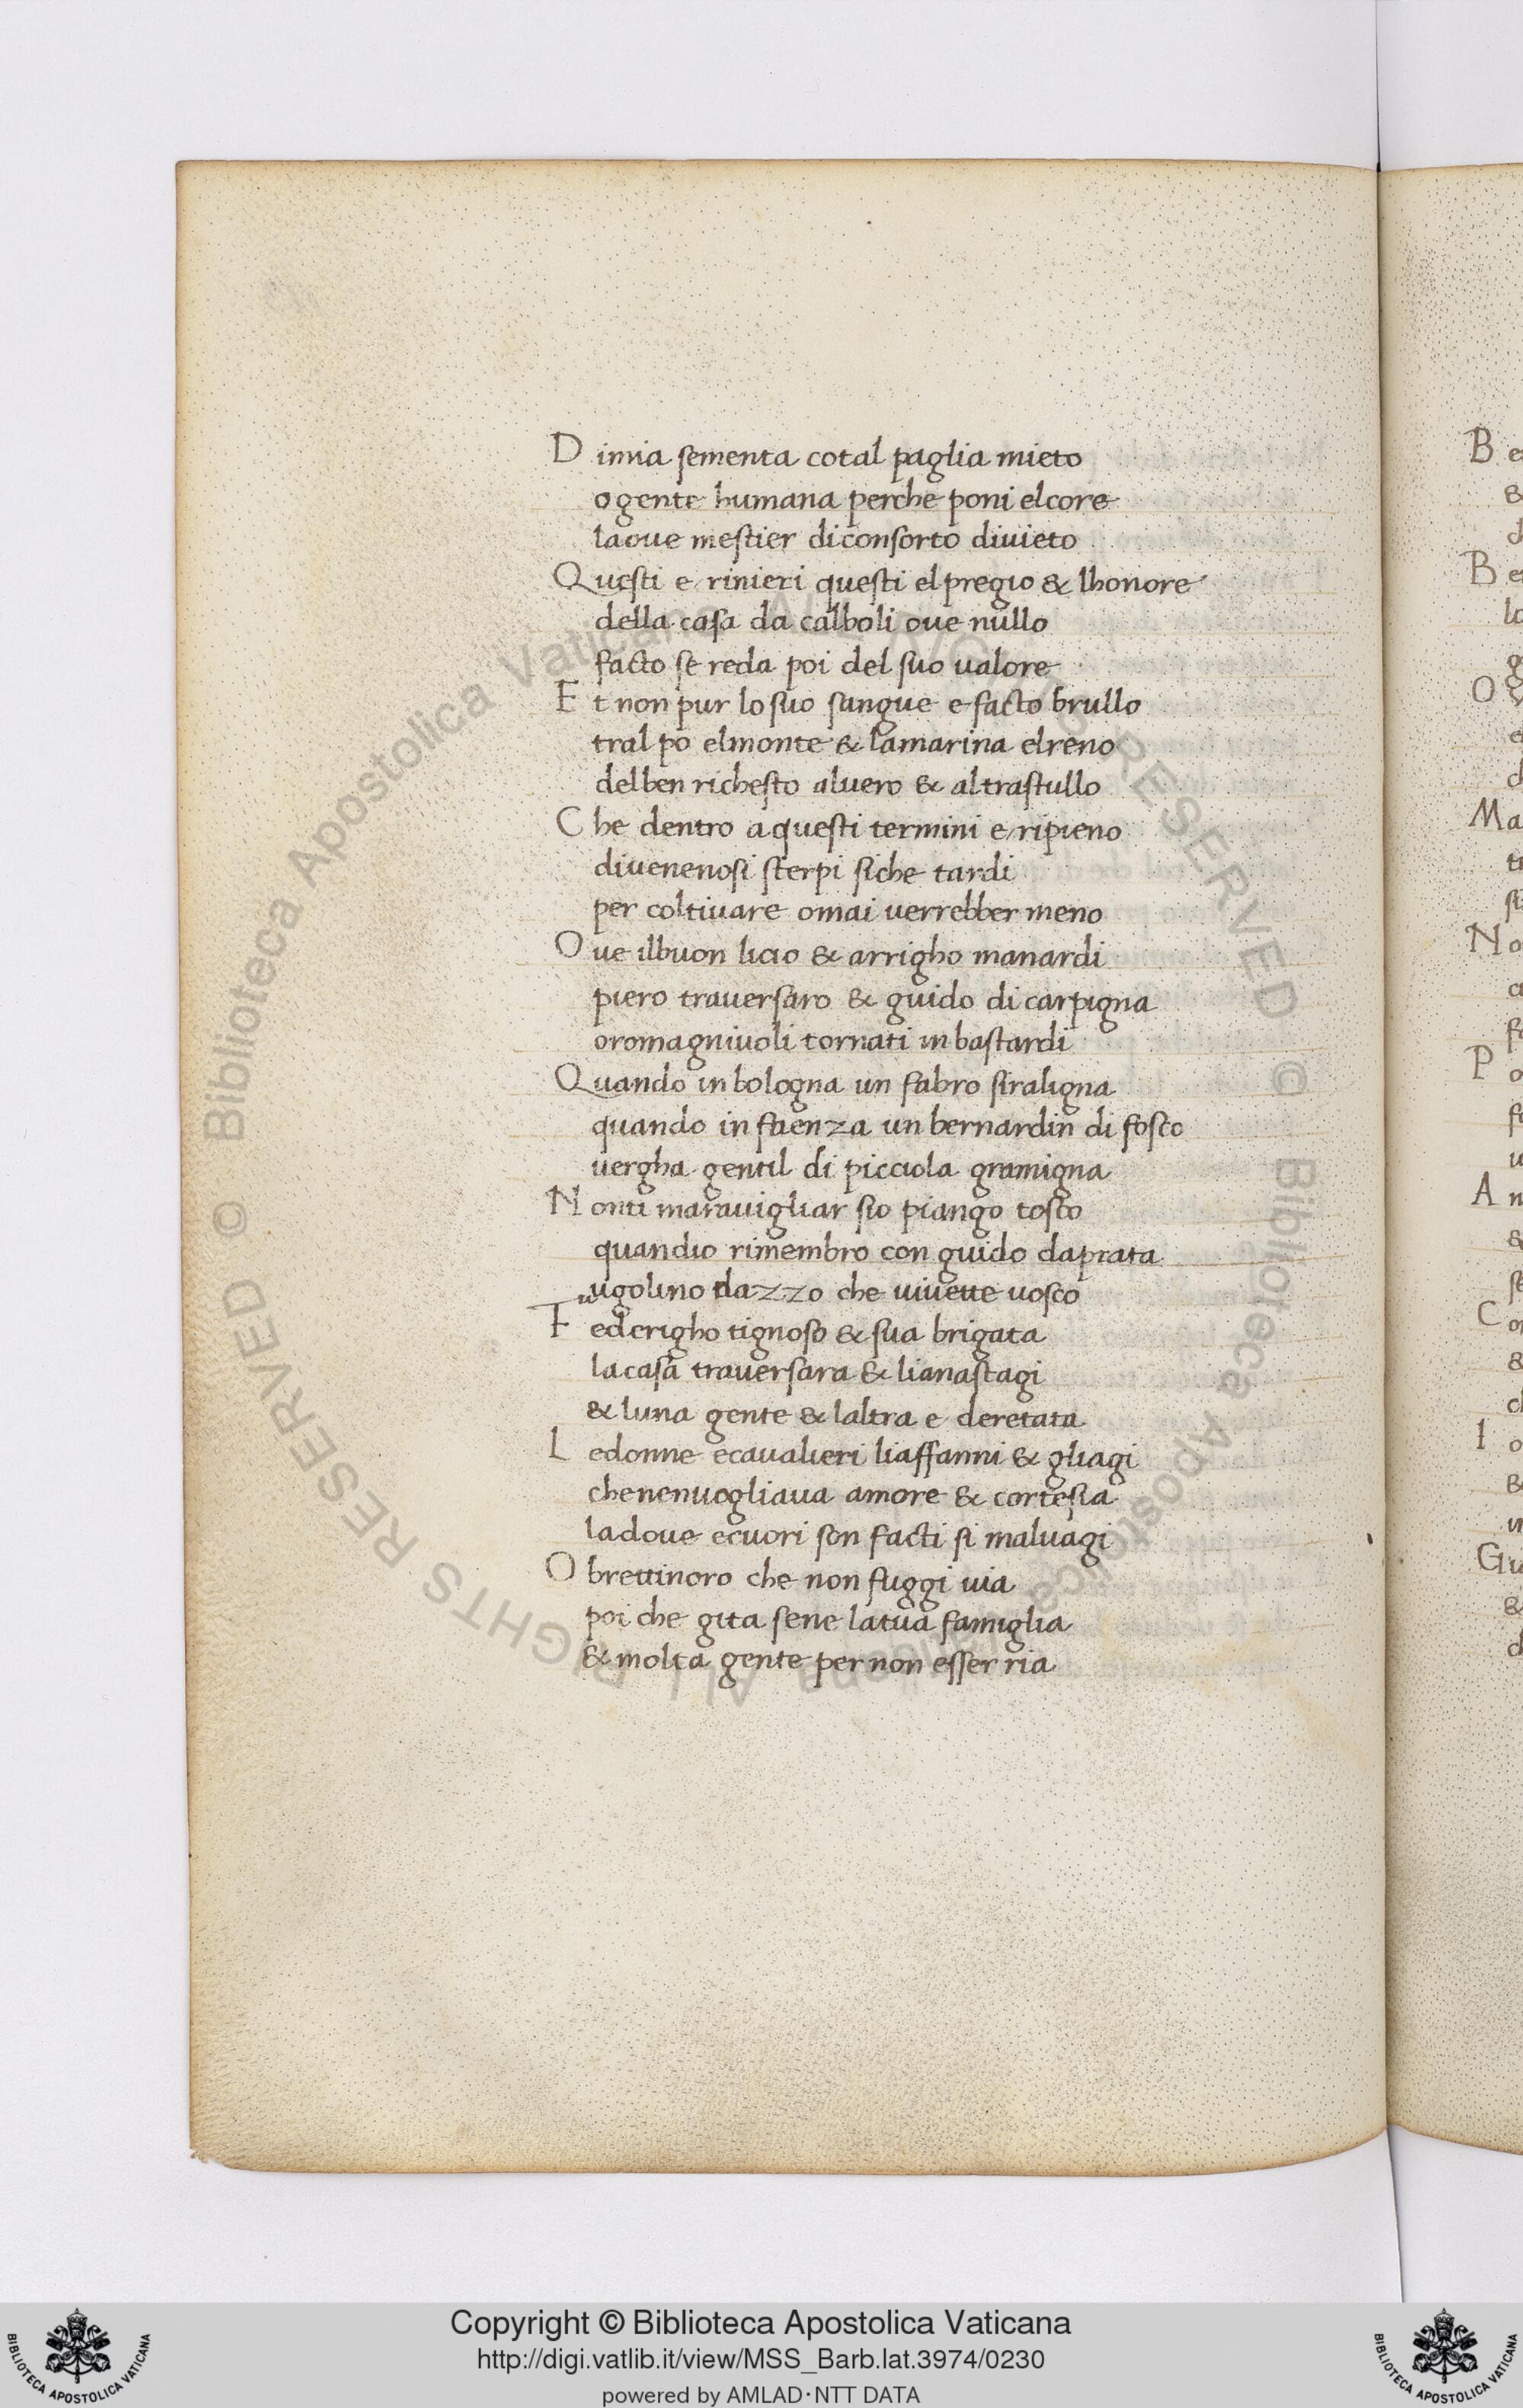 D imia sementa cotal paglia mieto
o gente humana perche poni elcore
laoue mestier diconsorto diuieto
Q uesti e rinieri questi elpregio & lhonore
della casa da calboli oue nullo
facto se reda poi del suo ualore
E t non pur lo suo sangue e facto brullo
tral po elmonte & lamarina elreno
delben richesto aluero & altrastullo
C he dentro a questi termini e ripieno
diuenenosi sterpi siche tardi
per coltiuare omai uerrebber meno
O ue ilbuon licio & arrigho manardi
piero trauersaro & guido di carpigna
oromagniuoli tornati in bastardi
Q uando in bologna un fabro siraligna
quando in faenza un bernardin di fosco
uergha gentil di picciola gramigna
N onti marauigliar sio piango tosco
quandio rimembro con guido daprata
ugolino dazzo che uiuette uosco
F ederigho tignoso & sua brigata
lacasa trauersara & lianastagi
& luna gente & laltra e deretata
L edonne ecaualieri liaffanni & gliagi
chenenuogliaua amore & cortesia
ladoue ecuori son facti si maluagi
O brettinoro che non fuggi uia
poi che gita sene latua famiglia
& molta gente per non esser ria
Copyright © Biblioteca Apostolica Vaticana
http://digi.vatlib.it/view/MSS_Barb.lat.3974/0230
powered by AMLAD·NTT DATA